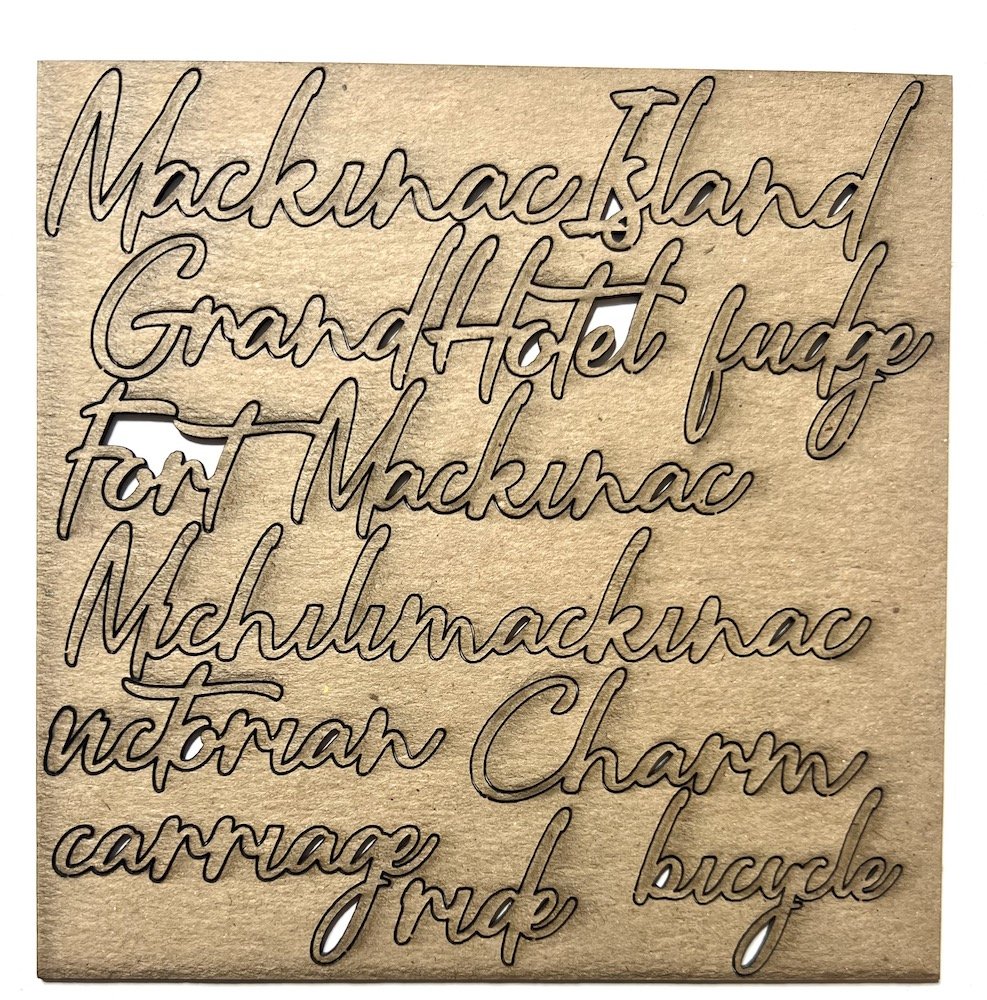 Mackinac Island
Grand Hotel fudge
Fort Mackinac
Michilimackinac
victorian Charm
carriage ride bicycle